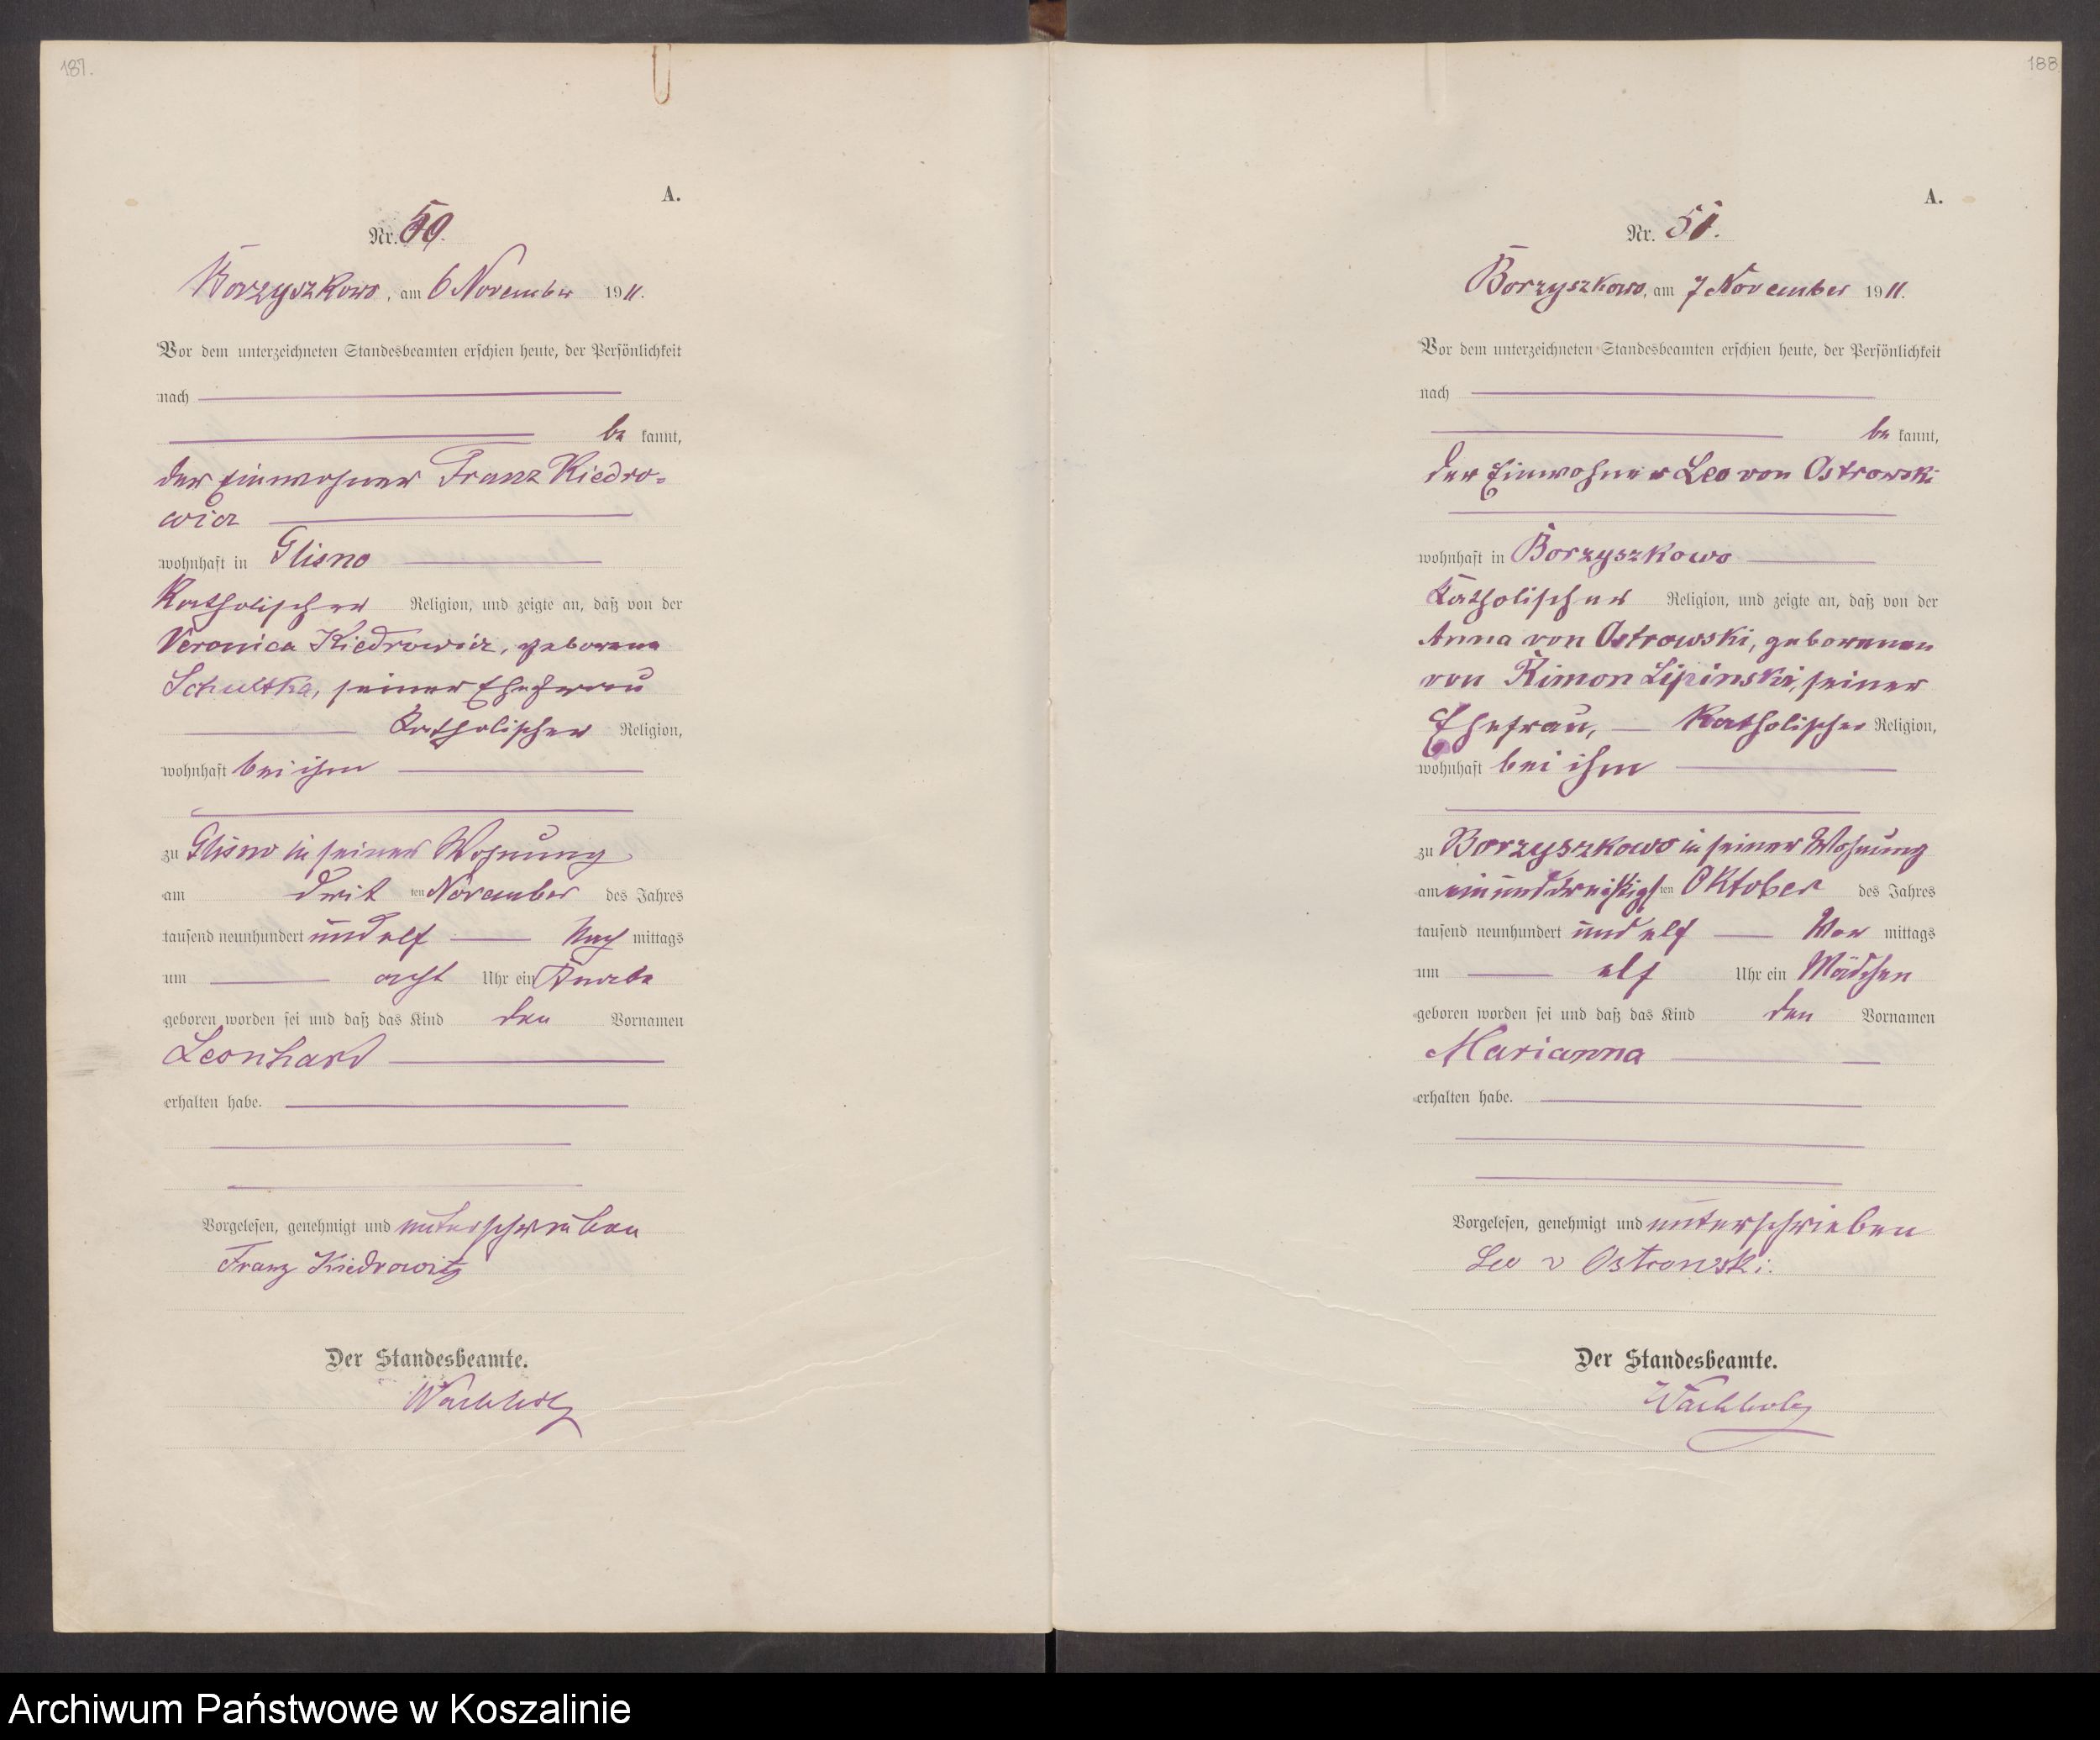 187.
A.
Nr. 50.
Borzyszkowo, am 6 November 1911.
Vor dem unterzeichneten Standesbeamten erschien heute, der Persönlichkeit
nach
be kannt,
der Einwohner Franz Kiedro-
wicz
wohnhaft in Glisno
Katholischer Religion, und zeigte an, daß von der
Veronica Kiedrowicz, geborene
Schultka, seiner Ehefrau
Katholischer Religion,
wohnhaft bei ihm
zu Glisno in seiner Wohnung
am dritten November des Jahres
tausend neunhundert und elf Nach mittags
um acht Uhr ein Knabe
geboren worden sei und daß das Kind den Vornamen
Leonhard
erhalten habe.
Vorgelesen, genehmigt und unterschrieben
Franz Kiedrowitz
Der Standesbeamte.
Wachholz
188
A.
Nr. 51.
Borzyszkowo, am 7 November 1911.
Vor dem unterzeichneten Standesbeamten erschien heute, der Persönlichkeit
nach
be kannt,
der Einwohner Leo von Ostrowski
wohnhaft in Borzyszkowo
Katholischer Religion, und zeigte an, daß von der
Anna von Ostrowski, geborenen
von Rimon Lipinski, seiner
Ehefrau, Katholischer Religion,
wohnhaft bei ihm
zu Borzyszkowo in seiner Wohnung
am einunddreißigsten Oktober des Jahres
tausend neunhundert und elf Vor mittags
um elf Uhr ein Mädchen
geboren worden sei und daß das Kind den Vornamen
Marianna
erhalten habe.
Vorgelesen, genehmigt und unterschrieben
Leo v Ostrowski.
Der Standesbeamte.
Wachholz
Archiwum Państwowe w Koszalinie